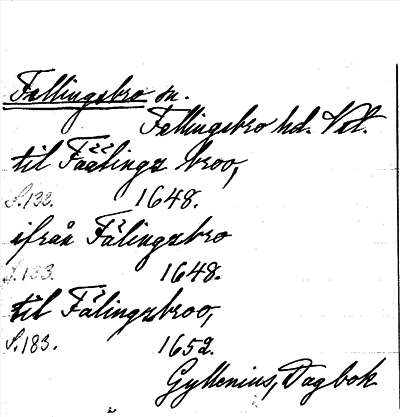 Fellingsbro sn.
Fellingsbro hd. Vstl.
til Fäälings broo,
S. 133. 1648.
ifrån Fälingzbro
S. 133. 1648.
til Fälingzbroo,
S. 183. 1652.
Gyllenius, Dagbok